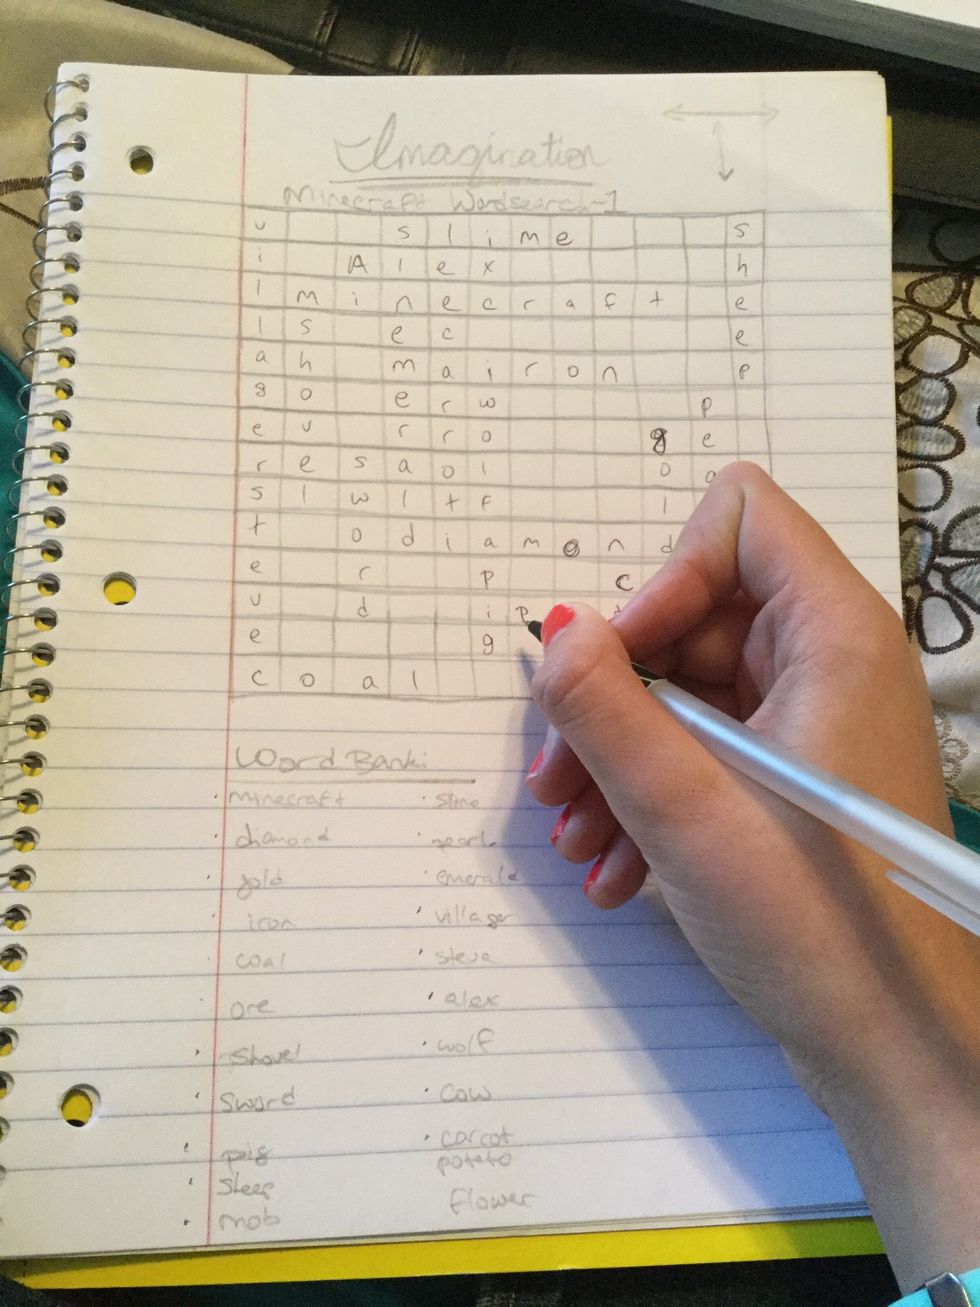 Imagination
Minecraft Wordsearch-1
v s l i m e s
i A l e x h
l m i n e c r a f t e
l s e c e
a h m a i r o n p
g o e r w p
e v r r o g e
r e s a o l o a
s l w l t f l
t o d i a m o n d
e r p c
v d i p
e g
c o a l
Word Bank:
· minecraft · slime
· diamond · pearl
· gold · emerald
· iron · villager
· coal · steve
· ore · alex
· shovel · wolf
· sword · cow
· pig · carrot
potato
· sheep flower
· mob